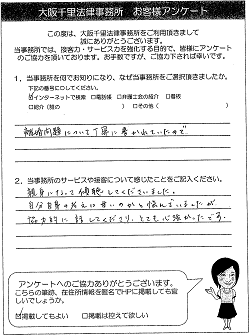 大阪千里法律事務所 お客様アンケート
この度は、大阪千里法律事務所をご利用頂きまして
誠にありがとうございます。
当事務所では、接客力・サービスを強化する目的で、皆様にアンケート
のご協力を頂いております。お手数ですが、ご協力下されば幸いです。
1．当事務所を何でお知りになり、なぜ当事務所をご選択頂きましたか。
下記の番号に○してください。
☑インターネットで検索 □電話帳 □弁護士会の紹介 □看板
□紹介（館の ）□その他（ ）
離婚問題について丁寧に書かれていたので
2．当事務所のサービスや接客について感じたことをご記入ください。
親身になって傾聴してくださいました。
自分自身の考えは甘いのかと悩んでいましたが
協力的に話してくださり、とても心強かったです。
アンケートへのご協力ありがとうございます。
こちらの筆跡、在住所情報を匿名でHPに掲載しても宜
しいでしょうか。
☑掲載してもよい □掲載は控えて欲しい